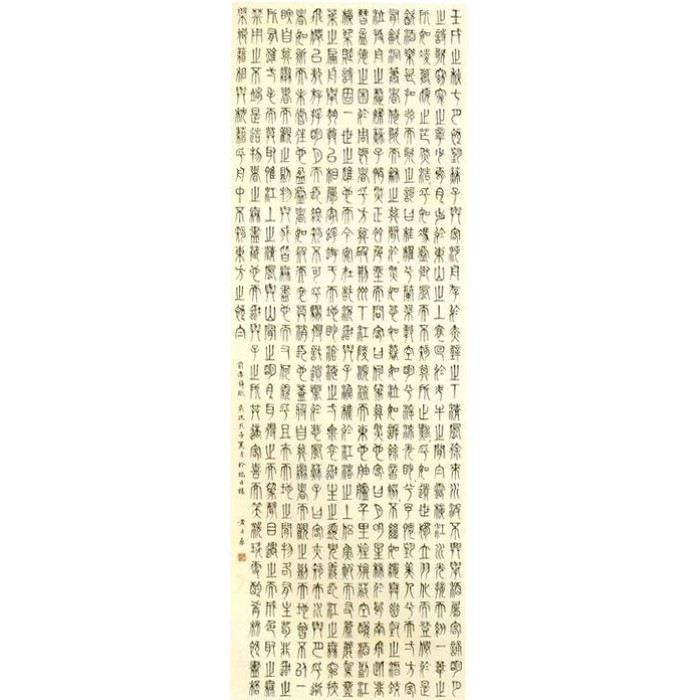 壬戌之秋七月既望蘇子與客泛舟游於赤壁之下清風徐來水波不興舉酒屬客誦明月
之詩歌窈窕之章少焉月出於東山之上徘徊於斗牛之間白露橫江水光接天縱一葦之
所如凌萬頃之茫然浩浩乎如馮虛御風而不知其所止飄飄乎如遺世獨立羽化而登仙於是
飲酒樂甚扣舷而歌之歌曰桂棹兮蘭槳擊空明兮泝流光渺渺兮予懷望美人兮天一方客有
吹洞簫者倚歌而和之其聲嗚嗚然如怨如慕如泣如訴餘音嫋嫋不絕如縷舞幽壑之潛蛟
泣孤舟之嫠婦蘇子愀然正襟危坐而問客曰何為其然也客曰
之困於周郎者乎方其破荊州下江陵順流而東也舳艫千里旌旗蔽空釃酒臨江
橫槊賦詩固一世之雄也而今安在哉況吾與子漁樵於江渚之上侶魚蝦而友麋鹿駕一
葉之扁舟舉匏樽以相屬寄蜉蝣於天地渺滄海之一粟哀吾生之須臾羨長江之無窮挾
飛仙以遨遊抱明月而長終知不可乎驟得託遺響於悲風蘇子曰客亦知夫水與月乎逝
者如斯而未嘗往也盈虛者如彼而卒莫消長也蓋將自其變者而觀之則天地曾不能以一
瞬自其不變者而觀之則物與我皆無盡也而又何羨乎且夫天地之間物各有主苟非吾之
所有雖一毫而莫取惟江上之清風與山間之明月耳得之而為聲目遇之而成色取之無
禁用之不竭是造物者之無盡藏也而吾與子之所共適客喜而笑洗盞更酌肴核既盡杯
槃狼藉相與枕藉乎舟中不知東方之既白
前赤壁賦